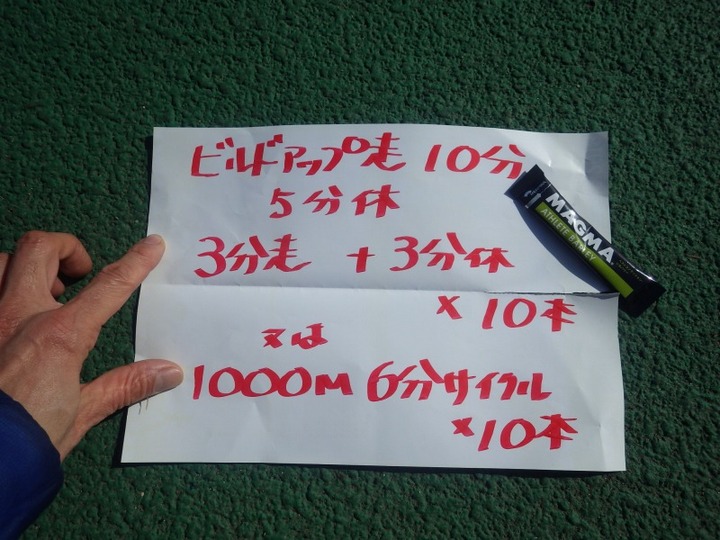 ビルドアップ走 10分
5分休
3分走 + 3分休
x 10本
又は
1000M 6分サイクル
x10本
MAGMA
ATHLETE BARLEY